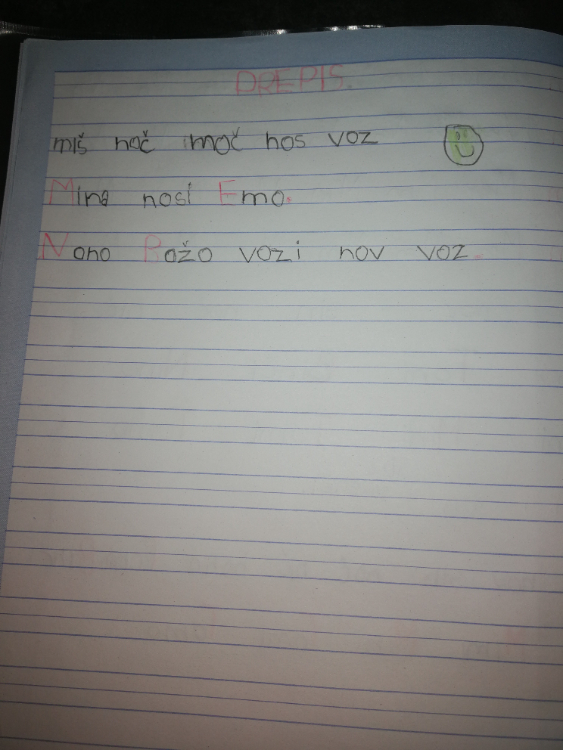 PREPIS.
miš noč moč nos voz
Mina nosi Emo.
Nono Božo vozi nov voz.